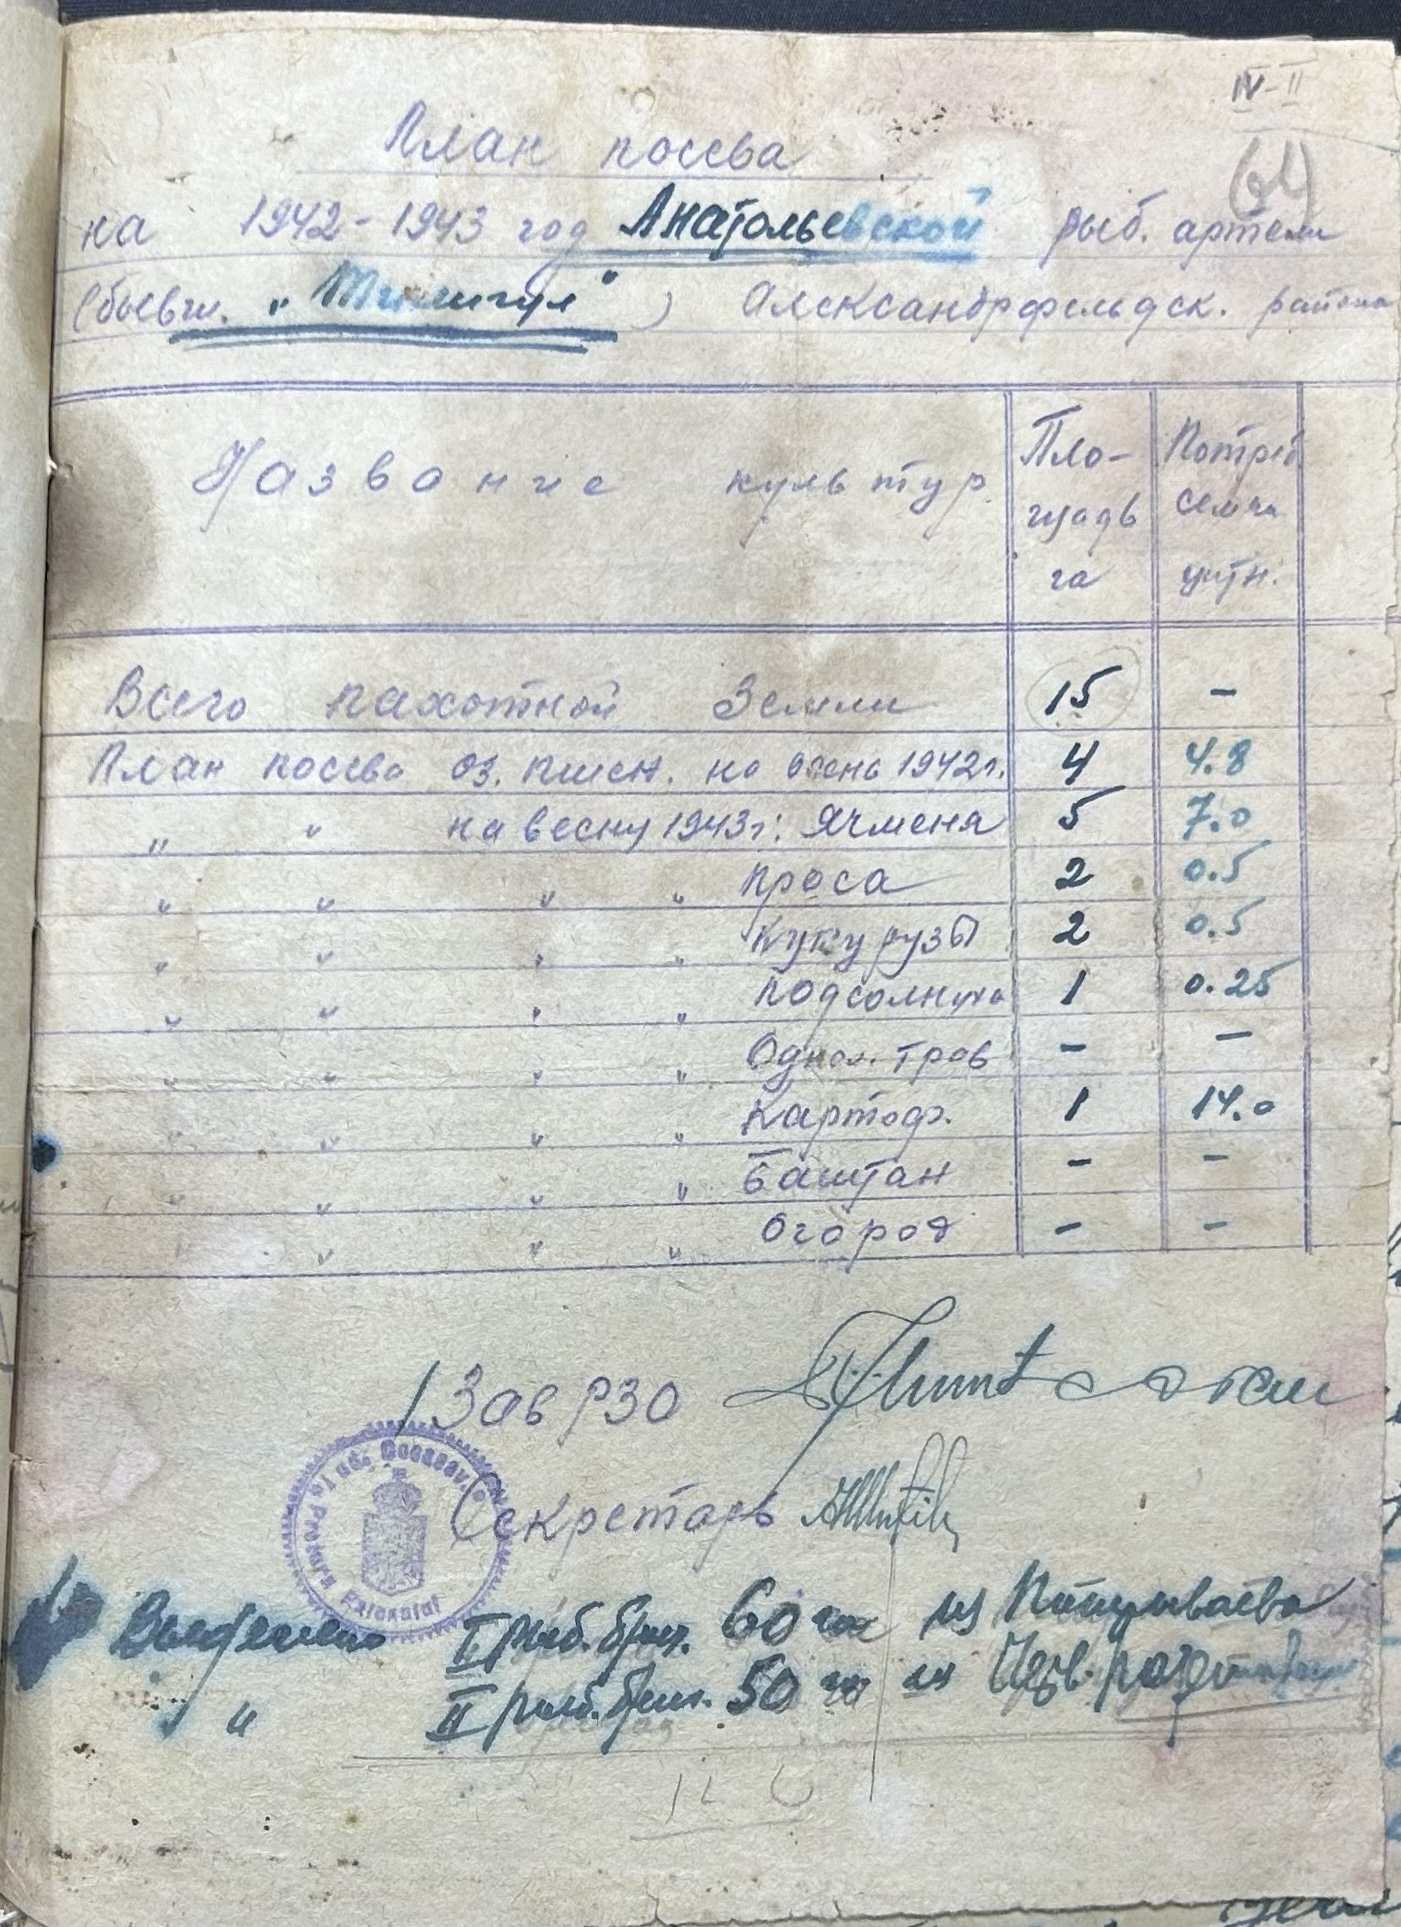 IV-II
План посева
на 1942-1943 год Анатольевской рыб. артели
(бывш. "Тилигул") Александрфельдск. района
Название культур
Пло-
щадь
га
Потреб
семян
цнтн.
Всего пахотной земли 15 -
План посева оз. пшен. на осень 1942г. 4 4.8
" " на весну 1943г: Ячменя 5 7.0
" " " " проса 2 0.5
" " " " кукурузы 2 0.5
" " " " подсолнуха 1 0.25
" " " " Однол. трав - -
" " " " Картоф. 1 14.0
" " " " Баштан - -
" " " " Огород - -
Зав РЗО
Секретарь
Выделено I рыб. бриг. 60 га из
" II рыб. бриг. 50 га из